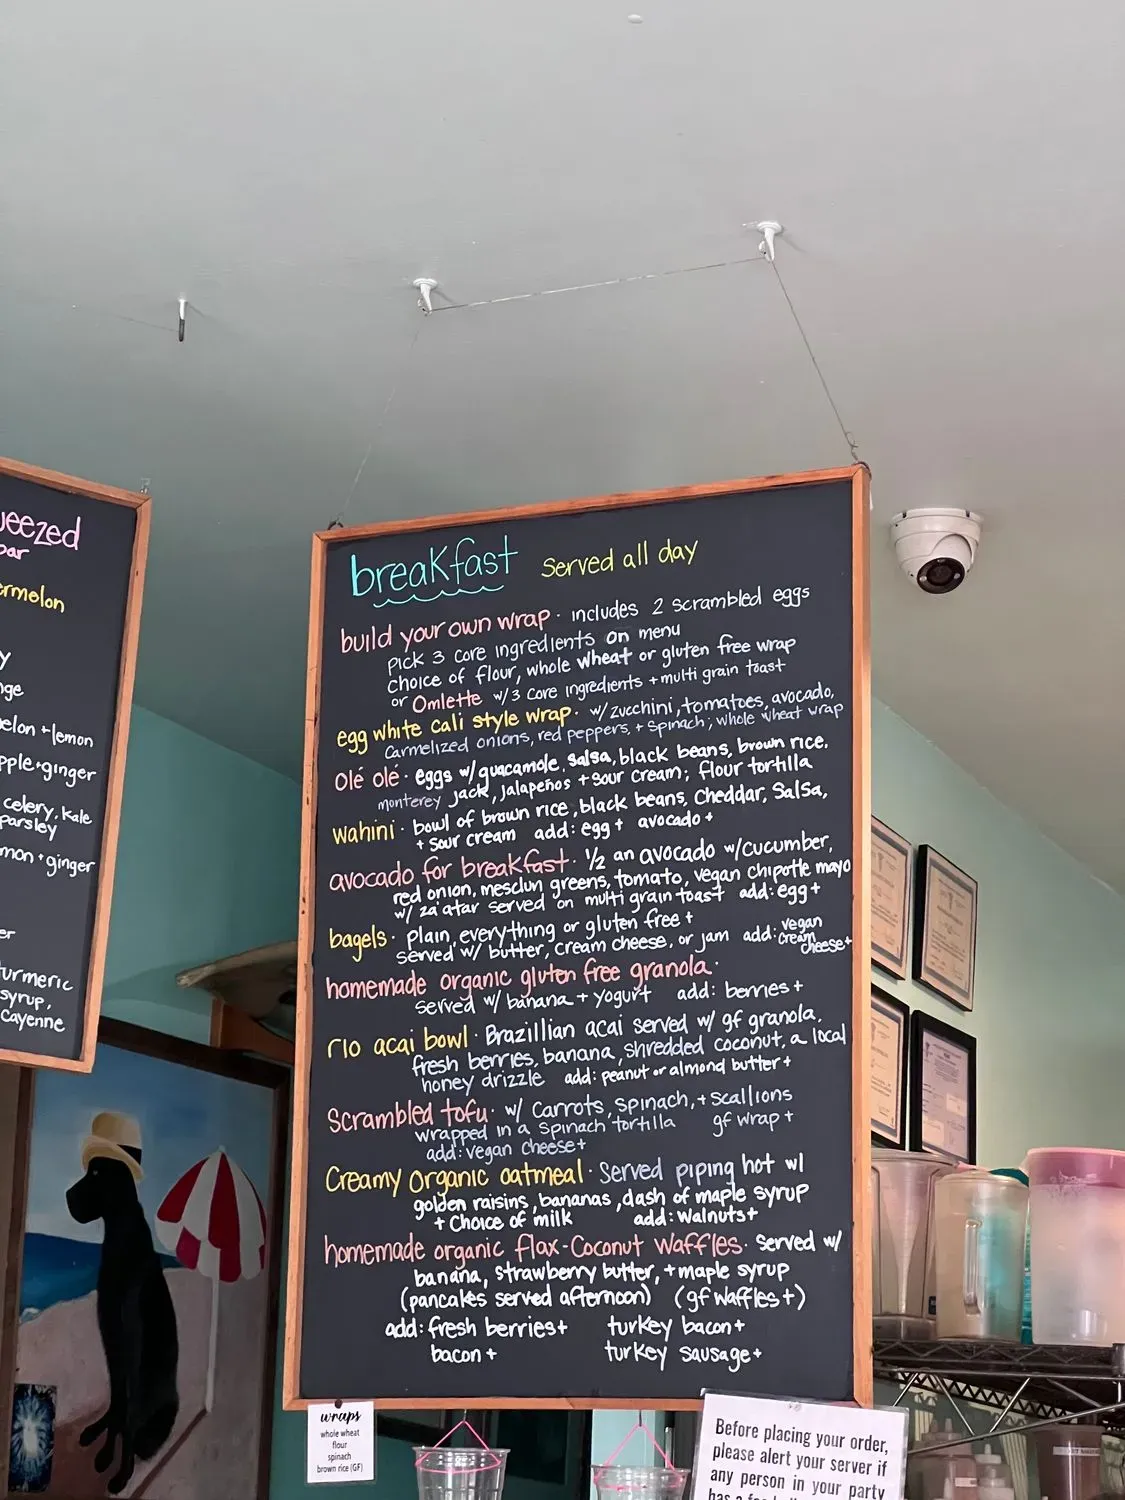 breakfast served all day
build your own wrap · includes 2 scrambled eggs
pick 3 core ingredients on menu
choice of flour, whole wheat or gluten free wrap
or Omlette w/3 core ingredients + multi grain toast
egg white cali style wrap · w/zucchini, tomatoes, avocado,
carmelized onions, red peppers, + spinach; whole wheat wrap
olé olé · eggs w/guacamole, salsa, black beans, brown rice,
monterey jack, jalapeños + sour cream; flour tortilla
wahini · bowl of brown rice, black beans, cheddar, salsa,
+ sour cream add: egg+ avocado+
avocado for breakfast · 1/2 an avocado w/cucumber,
red onion, mesclun greens, tomato, vegan chipotle mayo
w/ za'atar served on multi grain toast add: egg+
bagels · plain, everything or gluten free +
served w/ butter, cream cheese, or jam add: vegan cream cheese+
homemade organic gluten free granola ·
served w/ banana + yogurt add: berries+
rio acai bowl · Brazillian acai served w/ gf granola,
fresh berries, banana, shredded coconut, a local
honey drizzle add: peanut or almond butter+
Scrambled tofu · w/ carrots, spinach, + scallions
wrapped in a spinach tortilla gf wrap +
add: vegan cheese+
Creamy organic oatmeal · served piping hot w/
golden raisins, bananas, dash of maple syrup
+ choice of milk add: walnuts+
homemade organic flax-coconut waffles · served w/
banana, strawberry butter, + maple syrup
(pancakes served afternoon) (gf waffles +)
add: fresh berries+ turkey bacon+
bacon + turkey sausage+
ueezed
bar
ermelon
y
nge
elon + lemon
pple + ginger
celery, kale
parsley
mon + ginger
er
turmeric
syrup,
cayenne
wraps
whole wheat
flour
spinach
brown rice (GF)
Before placing your order,
please alert your server if
any person in your party
has a